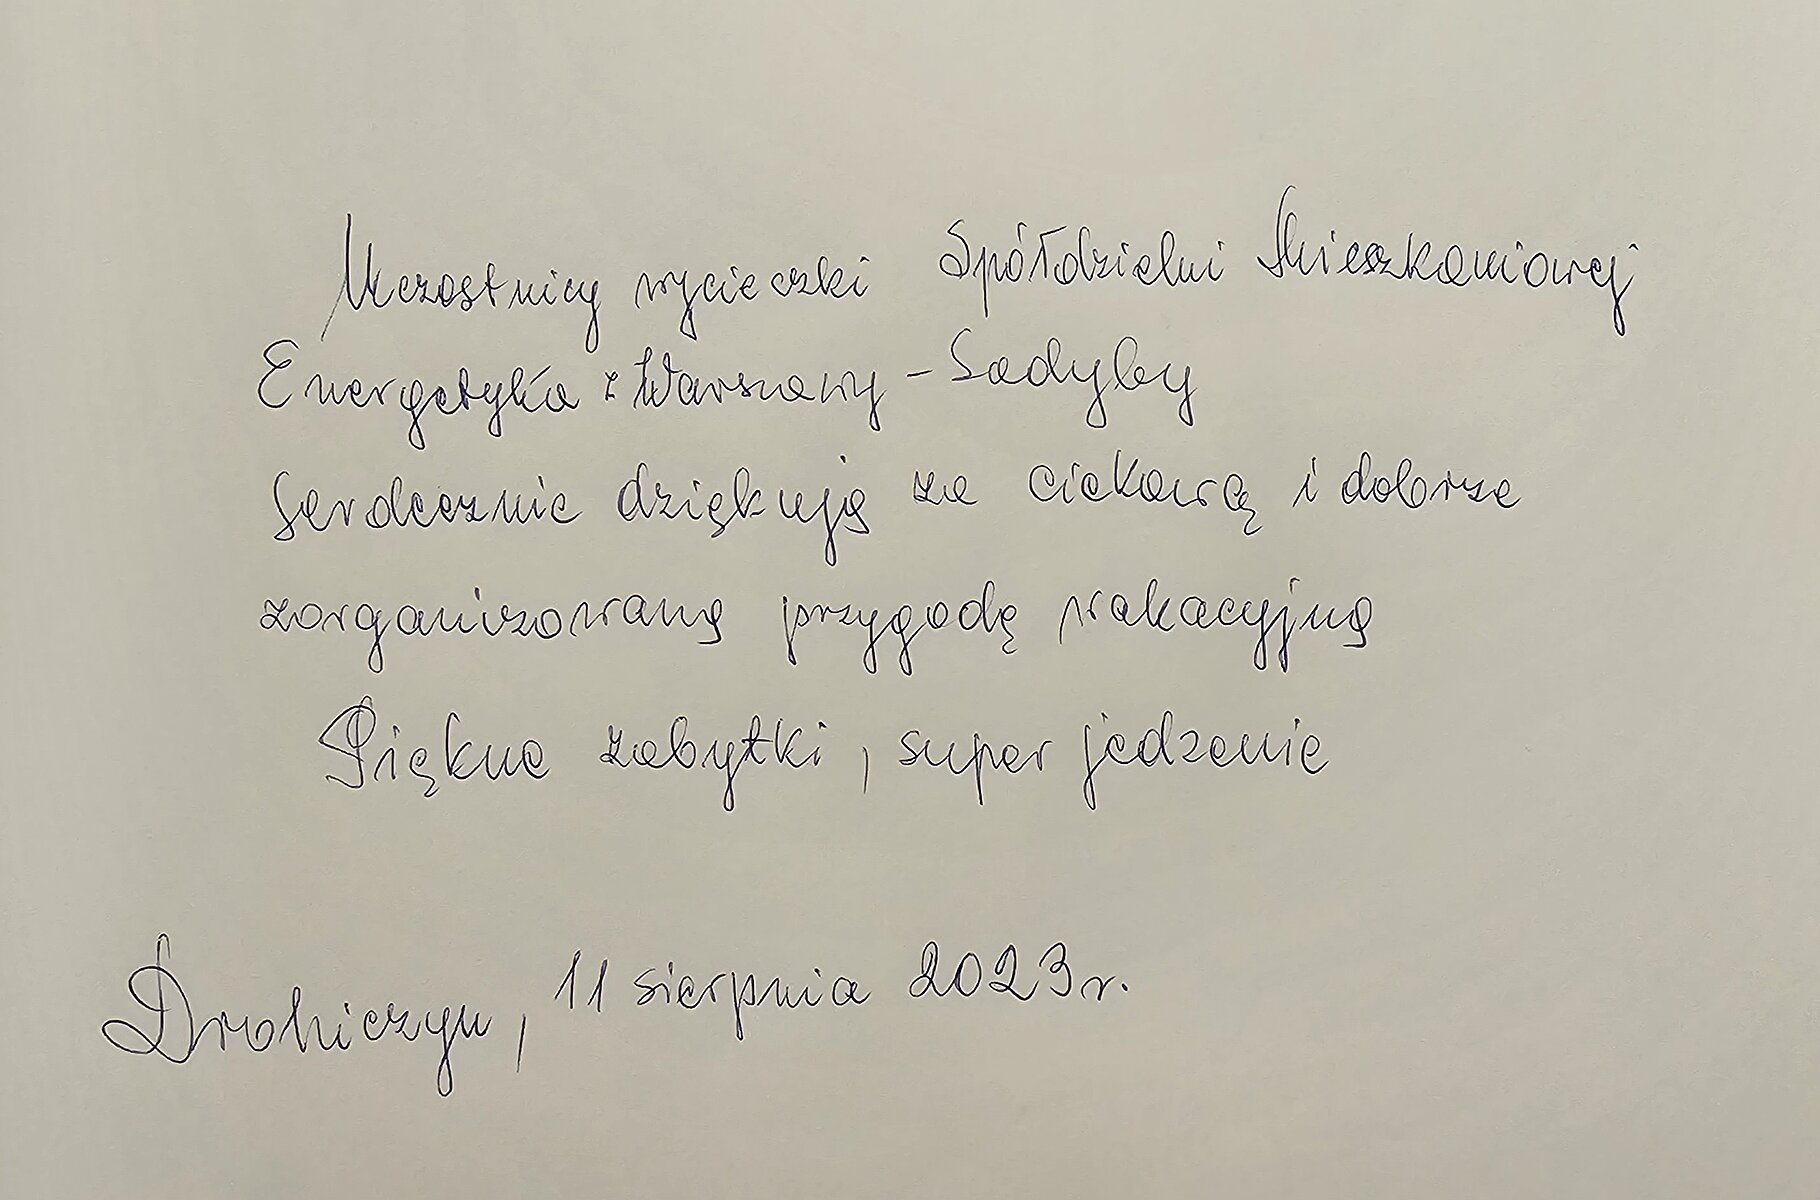 Uczestnicy wycieczki Spółdzielni Mieszkaniowej
Energetyka z Warszawy - Sadyby
serdecznie dziękują za ciekawą i dobrze
zorganizowaną przygodę wakacyjną
Piękne zabytki, super jedzenie
Drohiczyn, 11 sierpnia 2023 r.